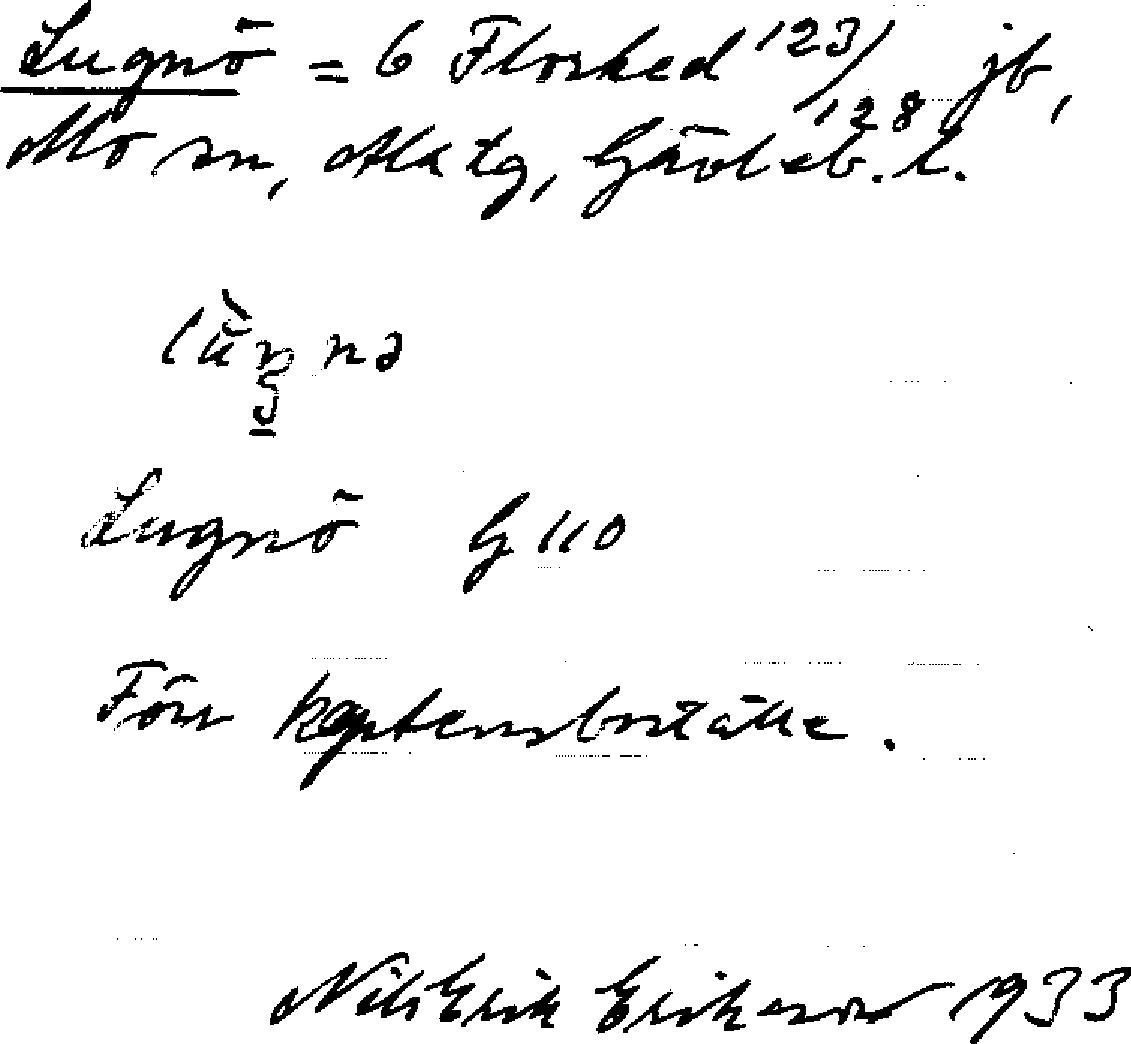 Lugnö = 6 Florhed 123/128 jb,
Mo sn, Ala tg, Gävleb. l.
Lugnö G 110
Förr kaptensboställe.
Nils Erik Eriksson 1933